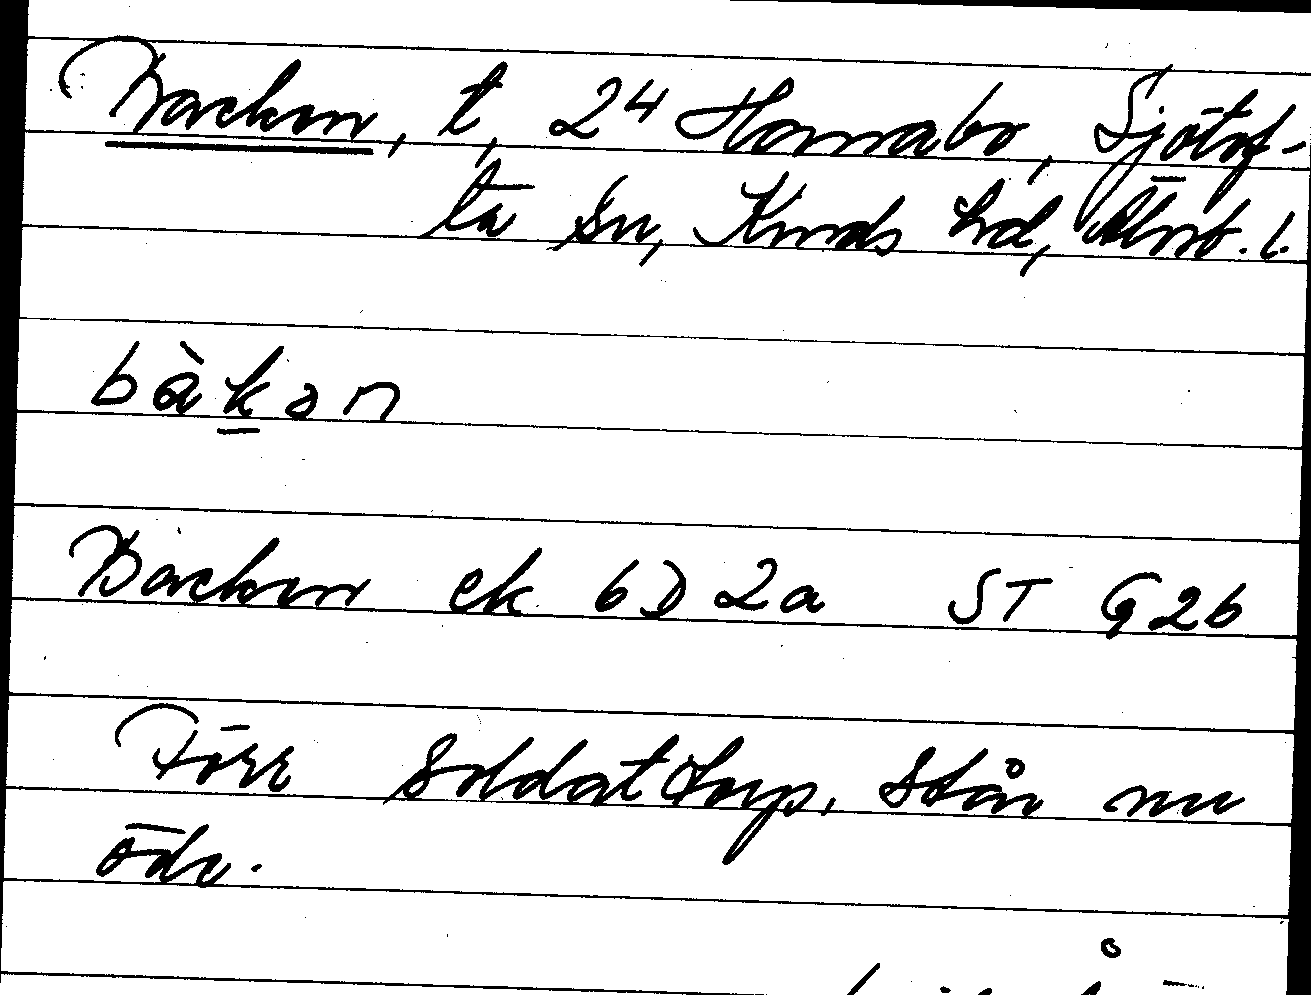 Backen, t, 24 Hornabo, Sjötof-
ta sn, Kinds hd, Älvsb. l.
bàkan
Backen ek 6D2a ST G2b
Förr soldattorp. Står nu
öde.